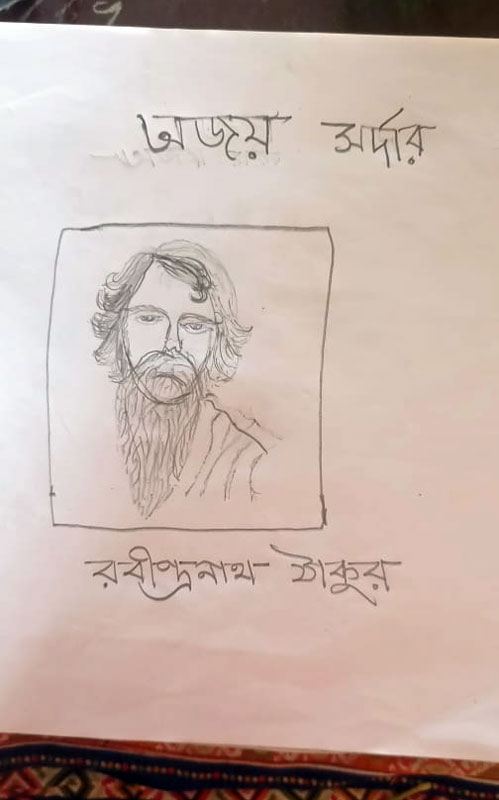 অজয় সর্দার
রবীন্দ্রনাথ ঠাকুর